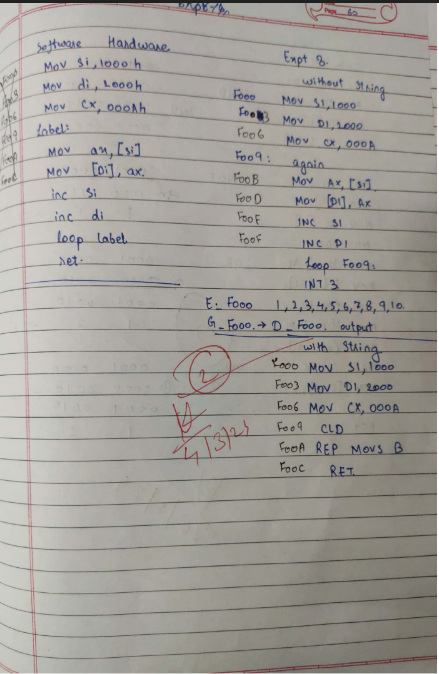 Software Hardware
Mov si, 1000 h
Mov di, 2000h
Mov Cx, 000Ah
Label:
Mov ax, [si]
Mov [Di], ax.
inc si
inc di
loop label
ret.
Expt 8.
without string
F000 Mov SI, 1000
F003 Mov DI, 2000
F006 Mov CX, 000A
F009: again
F00B Mov Ax, [SI].
F00D Mov [DI], Ax
F00E INC SI
F00F INC DI
Loop F009:
INT 3
E: F000 1,2,3,4,5,6,7,8,9,10.
G_F000. → D_F000. output
with String
F000 Mov SI, 1000
F003 Mov DI, 2000
F006 Mov CX, 000A
F009 CLD
F00A REP MOVS B
F00C RET.
2
4/3/24